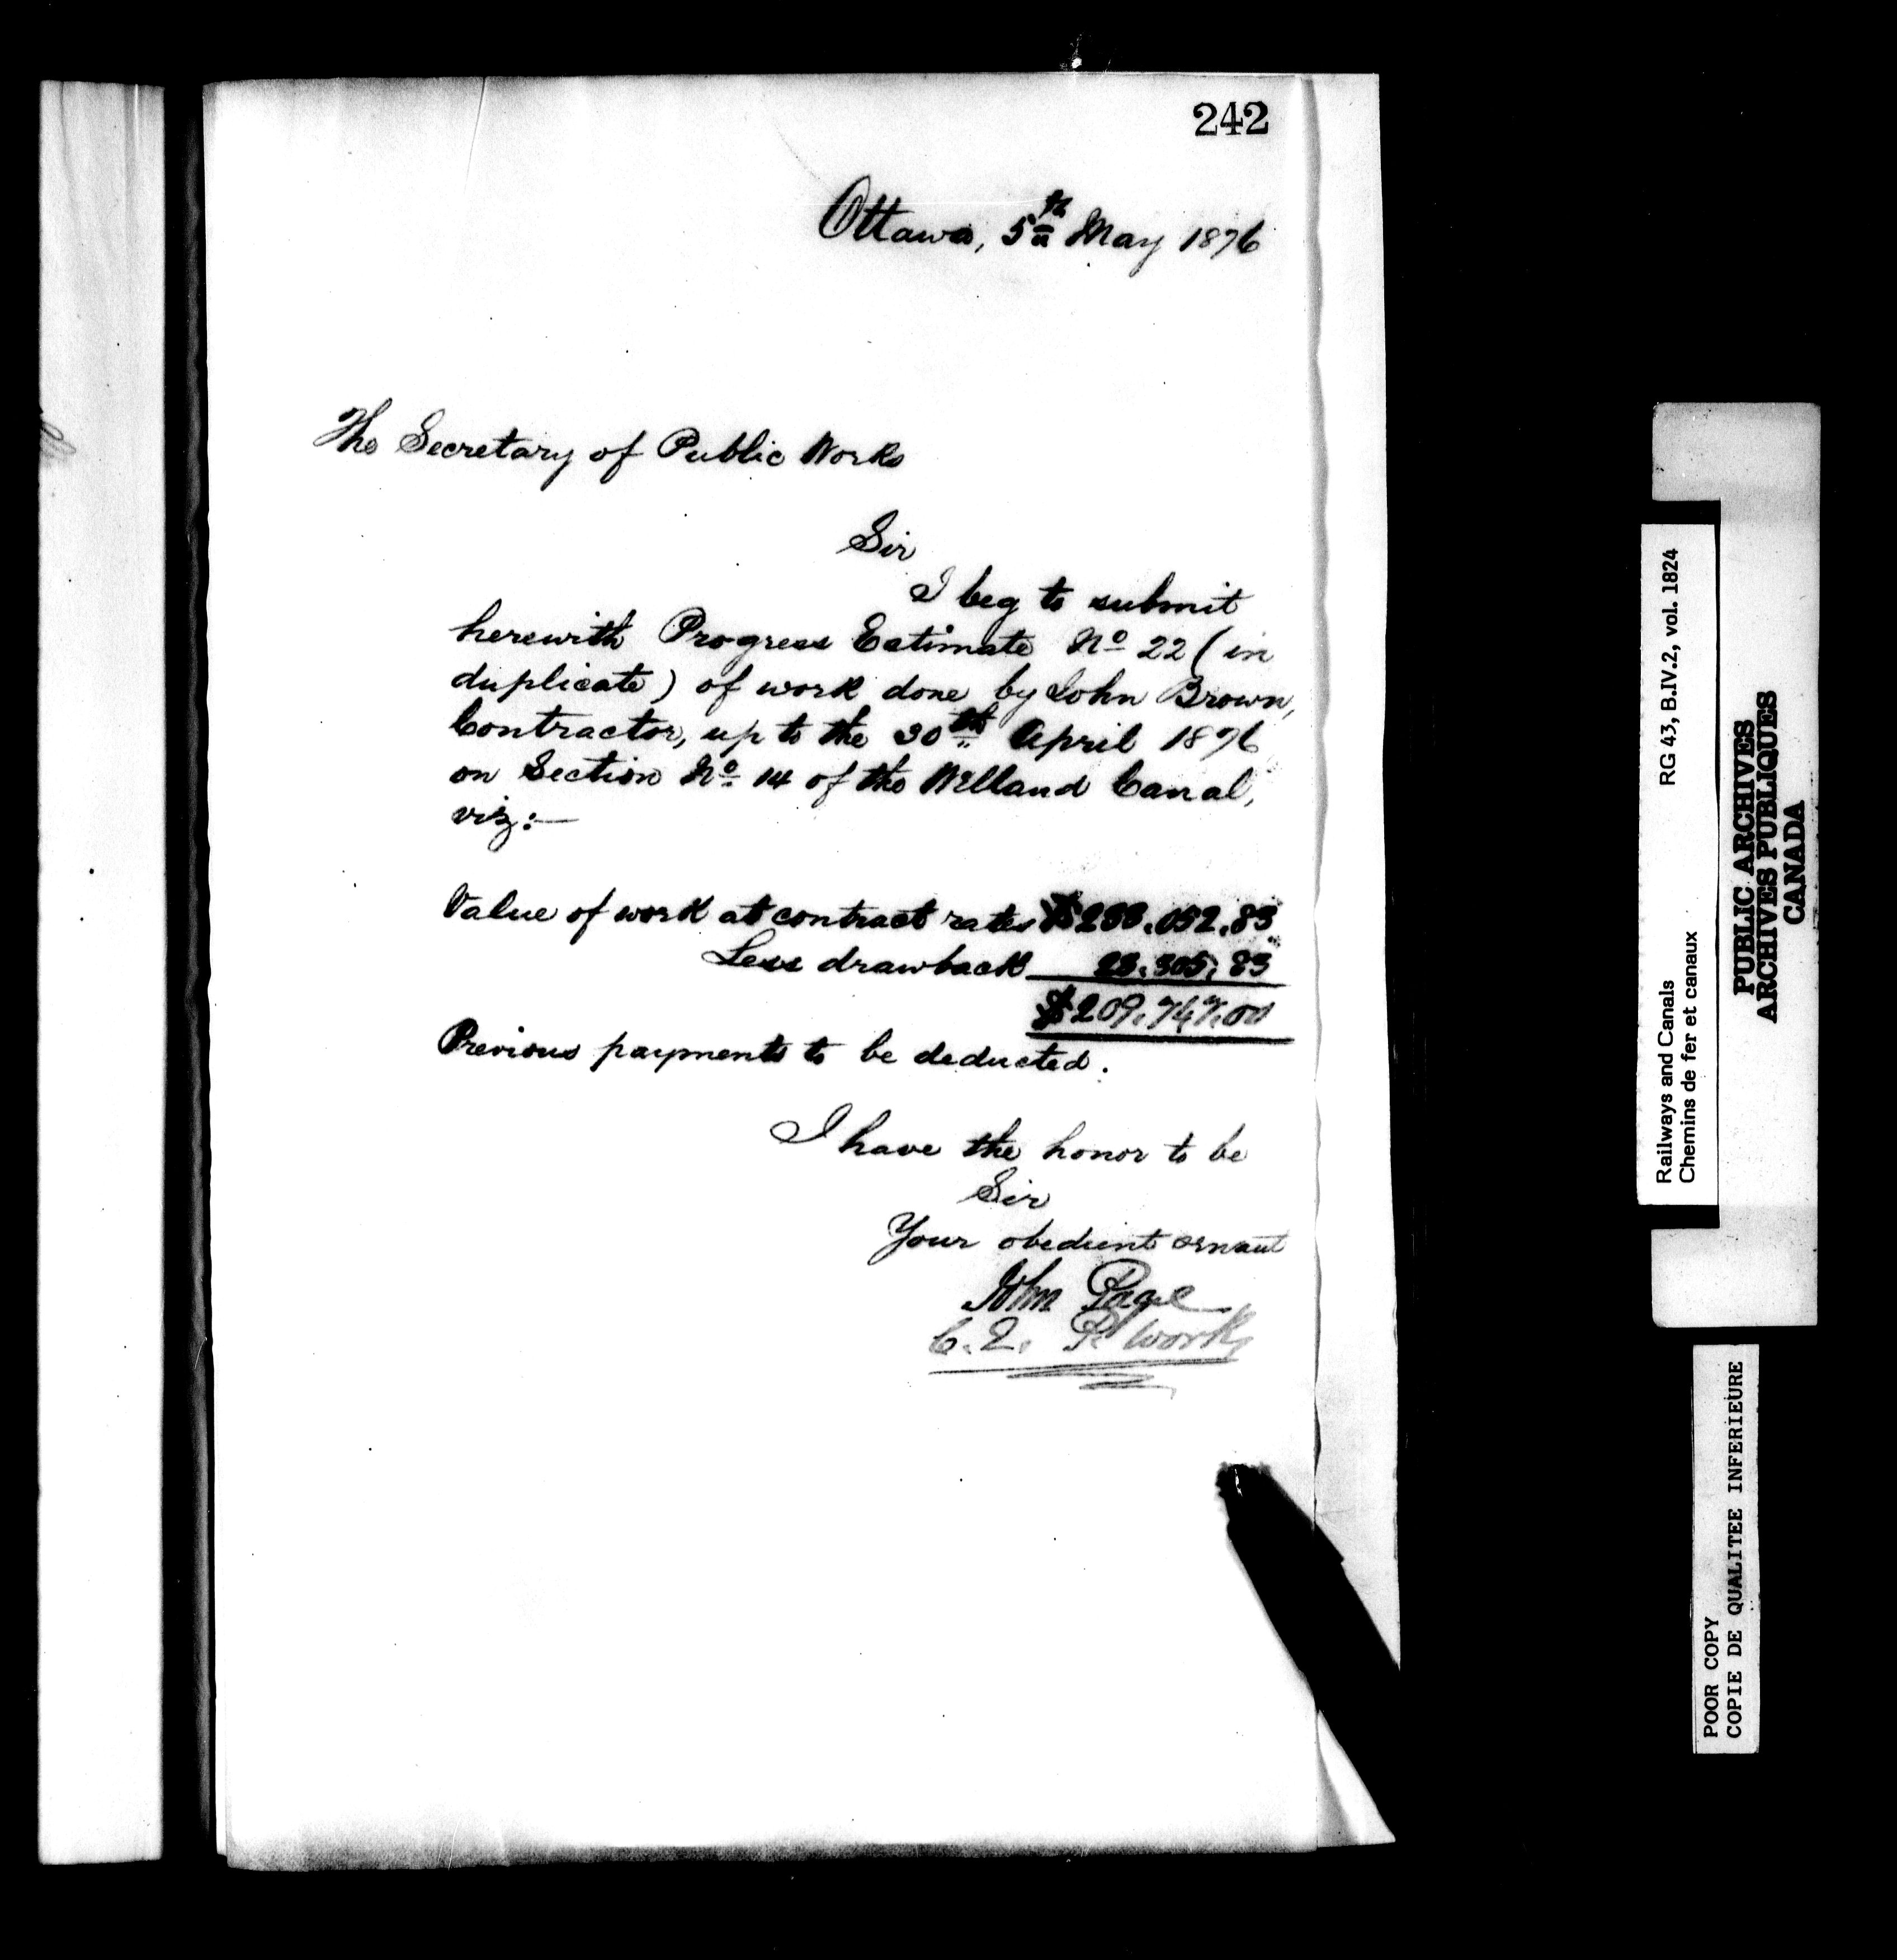 242
Ottawa, 5th May 1876
The Secretary of Public Works
Sir
I beg to submit
herewith Progress Estimate No 22 (in
duplicate) of work done by John Brown,
Contractor, up to the 30th April 1876
on Section No 14 of the Welland Canal,
viz:—
Value of work at contract rates $233,052.83
Less drawback 23,305.83
$209,747.00
Previous payments to be deducted.
I have the honor to be
Sir
Your obedient servant
John Page
C.E. P. Works
Railways and Canals RG 43, B.IV.2, vol. 1824
Chemins de fer et canaux
PUBLIC ARCHIVES
ARCHIVES PUBLIQUES
CANADA
POOR COPY
COPIE DE QUALITEE INFERIEURE